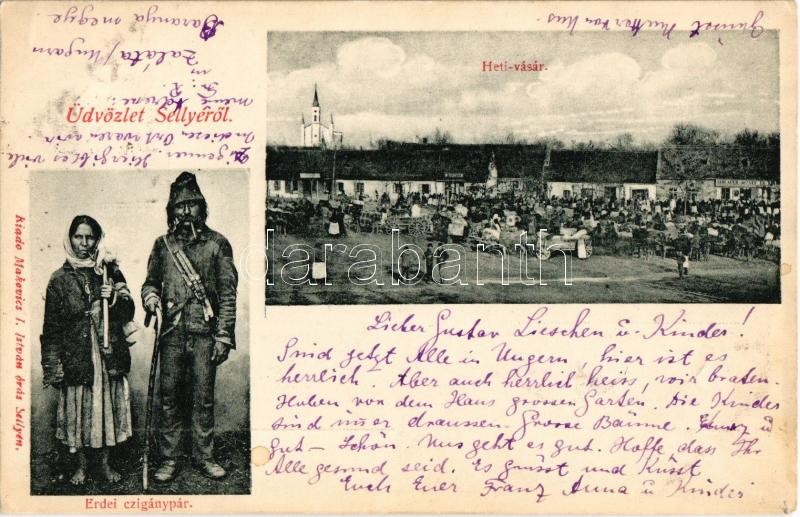 Baranya megye
Zaláta / Ungarn
meine Adresse:
Üdvözlet Sellyéről.
Zigeuner. Hier gibt es viele
Heti-vásár.
darabanth
Kiadó Makovics I. István órás Sellyén.
Erdei czigánypár.
Lieber Gustav Lieschen u. Kinder!
Sind jetzt Alle in Ungern, hier ist es
herrlich. Aber auch herrlich heiss, wir braten.
Haben vor dem Haus grossen Garten. Die Kinder
sind immer draussen. Grosse Bäume.
gut – Schön. Uns geht es gut. Hoffe, dass Ihr
Alle gesund seid. Es grüsst und Küsst
Euch Euer Franz Anna u Kinder